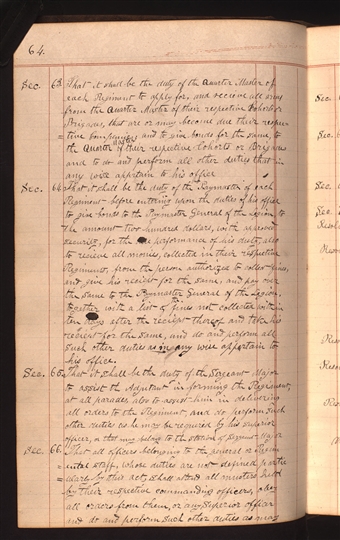 64.
Sec. 63 That it shall be the duty of the Quarter Master of
each Regiment to apply for, and receive all arms
from the Quarter Master of their respective Cohorts or
Brigades, that are or may become due their respec-
=tive companies and to give bonds for the same to
the Quarter Master of their respective Cohorts or Brigades
and to do and perform all other duties that in
any wise appertain to his office
Sec. 64 That it shall be the duty of the Paymaster of each
Regiment before entering upon the duties of his office
to give bonds to the Paymaster General of the Legion to
the amount two hundred dollars, with approved
security, for the performance of his duty, also
to receive all monies, collected in their respective
Regiments, from the person authorized to collect fines,
and give his receipt for the same, and pay over
the same to the Paymaster General of the Legion.
together with a list of fines not collected within
ten days after the receipt thereof and take his
receipt for the same, and do and perform all
such other duties as in any wise appertain to
his office.
Sec. 65 That it shall be the duty of the Sergeant Major
to assist the Adjutant in forming the Regiment,
at all parades also to assist him in delivering
all orders to the Regiment, and do perform such
other duties as he may be required by his superior
officer, or that may belong to the station of Sergeant Major
Sec. 66 That all officers belonging to the general or Regim-
=ental staff, whose duties are not defined partic
ularly by this act, shall attend all musters
by their respective commanding officers, obey
all orders from them, or any superior officer
and do and perform such other duties as
Sec.
Sec.
Sec.
Sec.